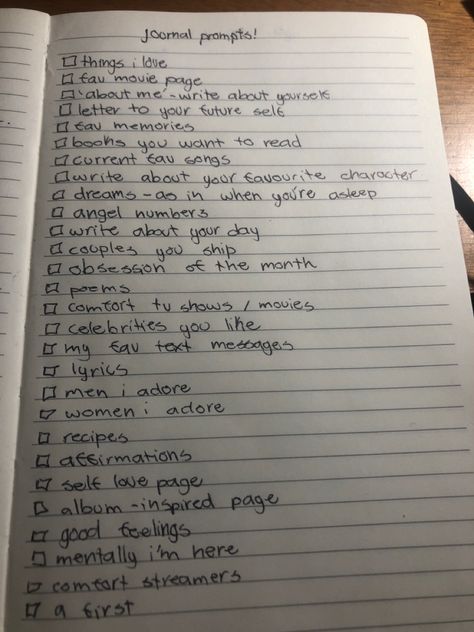 journal prompts!
things i love
fav movie page
'about me' - write about yourself
letter to your future self
fav memories
books you want to read
current fav songs
write about your favourite character
dreams - as in when you're asleep
angel numbers
write about your day
couples you ship
obsession of the month
poems
comfort tv shows / movies
celebrities you like
my fav text messages
lyrics
men i adore
women i adore
recipes
affirmations
self love page
album - inspired page
good feelings
mentally i'm here
comfort streamers
a first